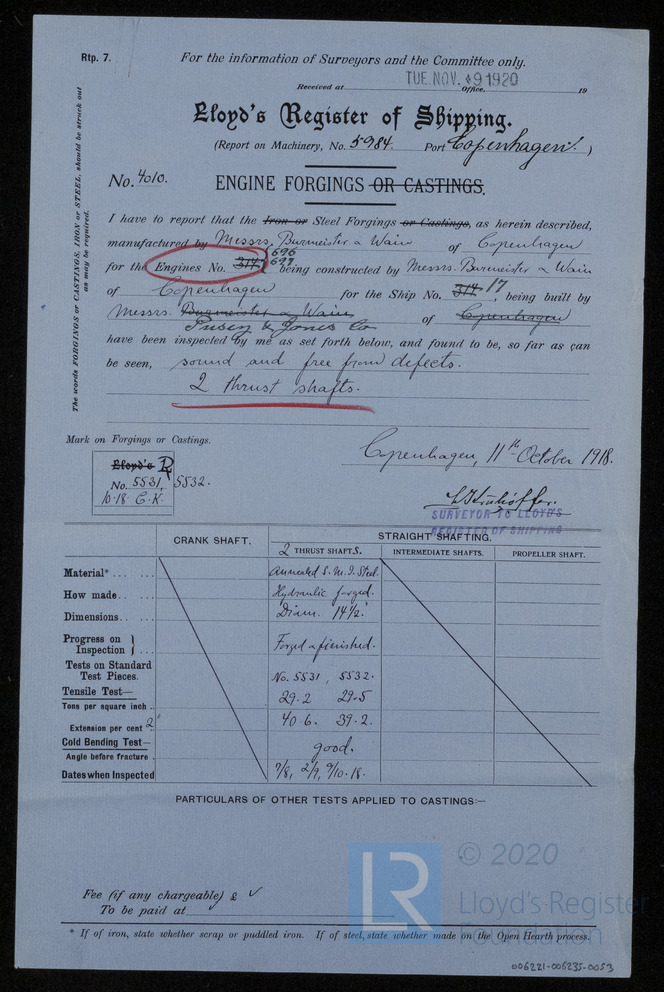 Rtp. 7.
For the information of Surveyors and the Committee only.
Received at Office, 19
TUE. NOV. 9 1920
Lloyd's Register of Shipping.
(Report on Machinery, No. 5984. Port Copenhagen.)
No. 4010.
ENGINE FORGINGS OR CASTINGS.
The words FORGINGS or CASTINGS, IRON or STEEL, should be struck out
as may be required.
I have to report that the Iron or Steel Forgings or Castings, as herein described,
manufactured by Messrs. Burmeister & Wain of Copenhagen
696
for the Engines No. 314 being constructed by Messrs. Burmeister & Wain
of Copenhagen for the Ship No. 314 17, being built by
Messrs. Burmeister & Wain of Copenhagen
Pusey & Jones Co
have been inspected by me as set forth below, and found to be, so far as can
be seen, sound and free from defects.
2 thrust shafts.
Mark on Forgings or Castings.
Lloyd's R
No. 5531, 5532.
10.18 C.K.
Copenhagen, 11th October 1918.
SURVEYOR TO LLOYD'S
REGISTER OF SHIPPING
CRANK SHAFT. STRAIGHT SHAFTING.
2 THRUST SHAFTS. INTERMEDIATE SHAFTS. PROPELLER SHAFT.
Material* Annealed S.M.I. Steel.
How made Hydraulic forged.
Dimensions Diam. 14½"
Progress on Inspection Forged & finished.
Tests on Standard
Test Pieces. No. 5531, 5532.
Tensile Test—
Tons per square inch 29.2 29.5
Extension per cent 2" 40.6. 39.2.
Cold Bending Test— good.
Angle before fracture
Dates when Inspected 7/8, 2/9, 9/10.18.
PARTICULARS OF OTHER TESTS APPLIED TO CASTINGS:—
Fee (if any chargeable) £ ✓
To be paid at
* If of iron, state whether scrap or puddled iron. If of steel, state whether made on the Open Hearth process.
LR
© 2020
Lloyd's Register
Foundation
006221-006235-0053